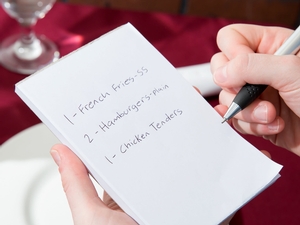 1-French Fries-SS
2-Hamburgers-plain
1-Chicken Tenders